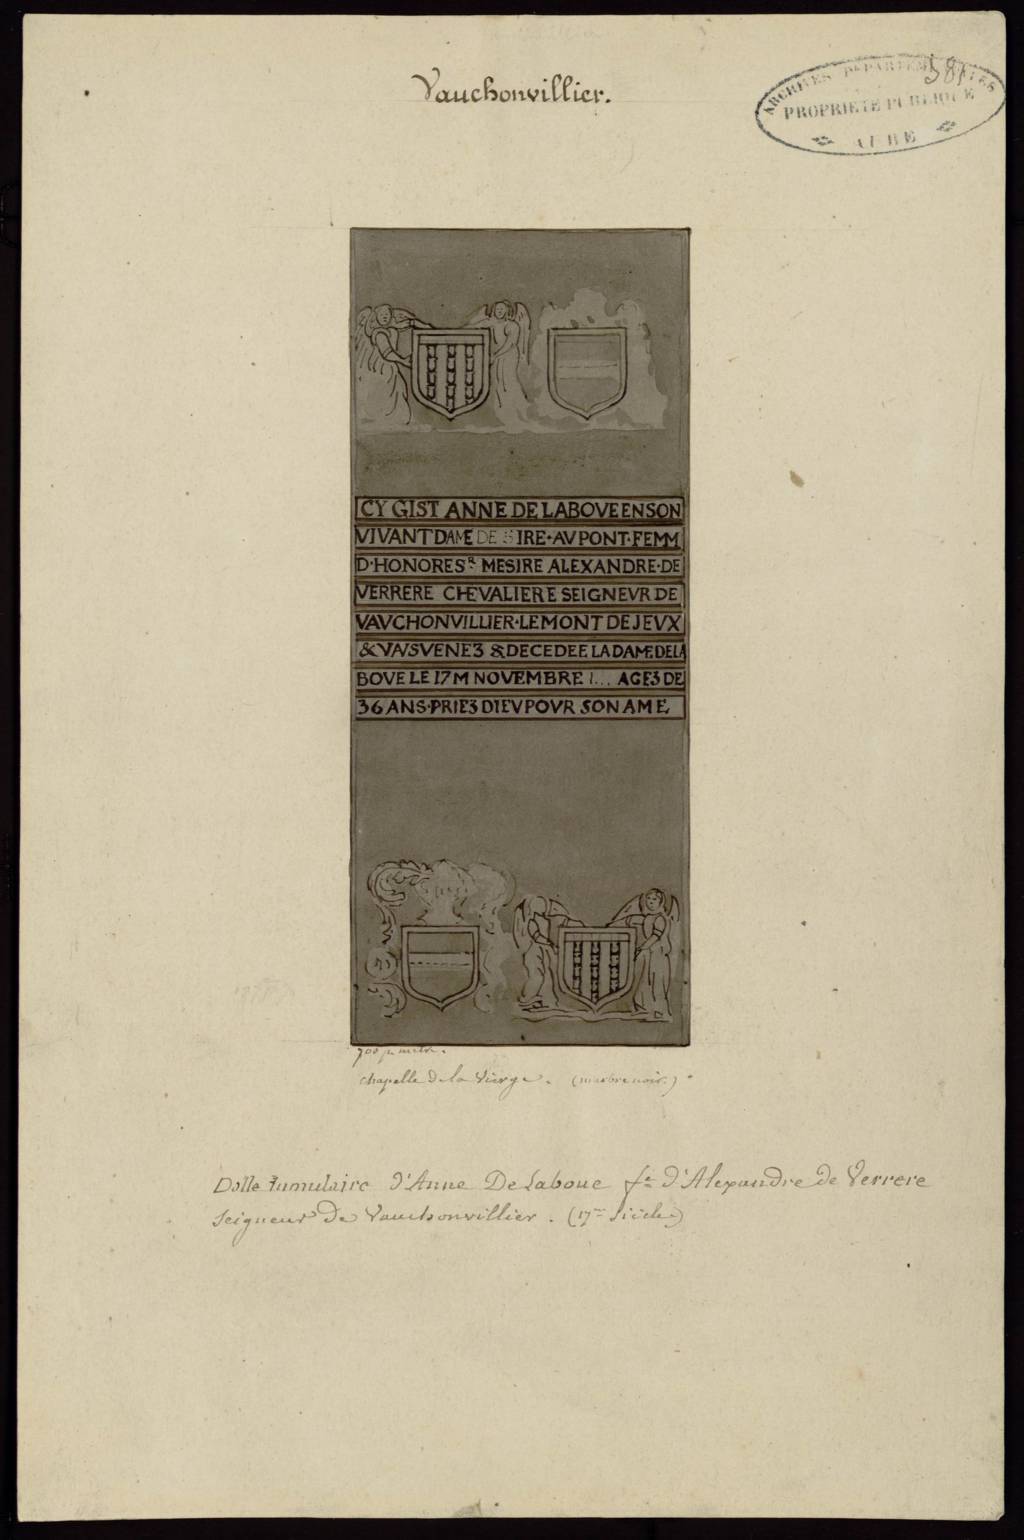 Vauchonvillier.
381
ARCHIVES DEPARTEMENTALES
PROPRIETE PUBLIQUE
AUBE
CY GIST ANNE DE LABOVE EN SON
VIVANT DAME DE IRE·AV PONT·FEMM
D·HONORE SR MESIRE ALEXANDRE·DE
VERRERE CHEVALIERE SEIGNEVR DE
VAVCHONVILLIER·LEMONT DE JEVX
& DECEDEE LA DAME DE LA
BOVE LE 17M NOVEMBRE 1... AGE3 DE
36 ANS·PRIE3 DIEV POVR SON AME
Chapelle de la Vierge. (marbre noir.)
Dalle tumulaire d'Anne De Laboue fe d'Alexandre de Verrere
Seigneur De Vauchonvillier. (17me Siècle)